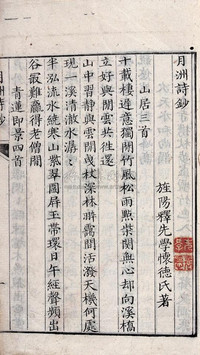 月洲詩鈔
旌陽釋先學懷德氏著
山居三首
十載棲遲意獨閒竹風松雨㸃柴關無心却向溪橋
立好與閒雲共往還
山中習靜與雲閒曳杖深林聨露間活潑天機何處
現一溪清澈水潺潺
半泓流水繞寒山紫翠圍屏玉帶環日午經聲頻出
谷最難贏得老僧閒
青蓮即景四首
月洲詩鈔